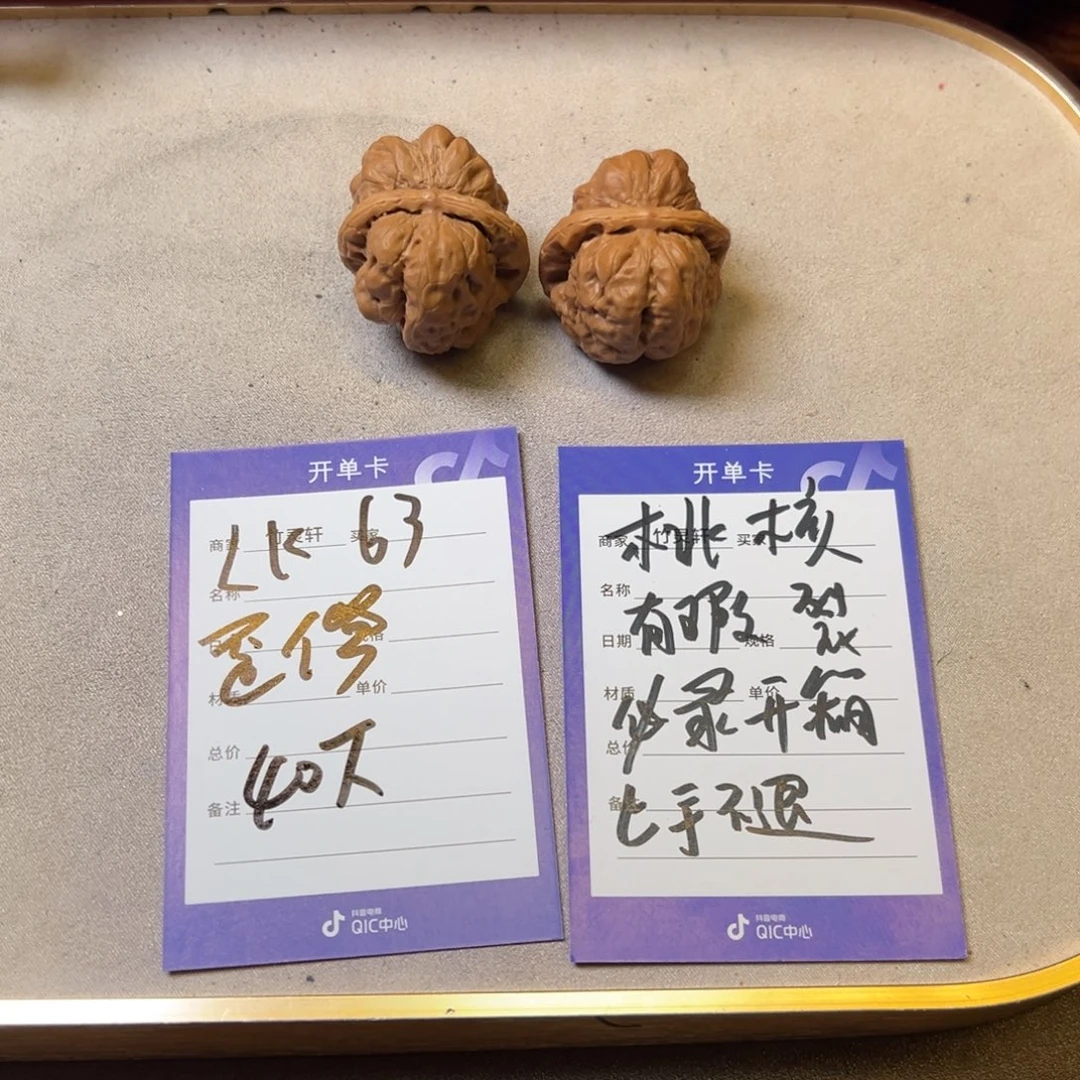 开单卡
LK 63
商家 竹灵轩 买家
名称
规格
材质 单价
40天
总价
备注
抖音电商
QIC中心
开单卡
桃核
商家 竹灵轩 买家
名称
有瑕 裂
日期 规格
必录开箱
材质 单价
总价
上手不退
备注
抖音电商
QIC中心